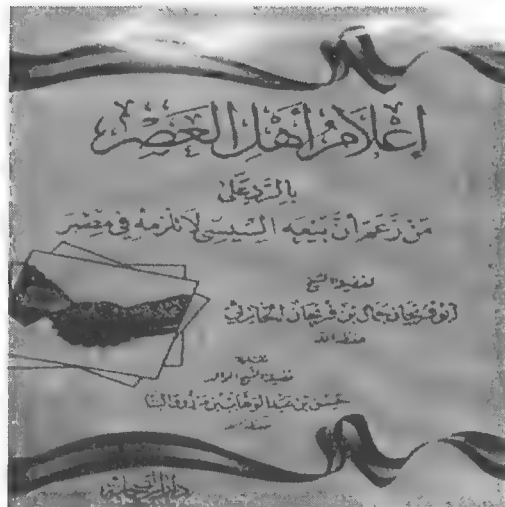 إعلام أهل العصر
بالرد على
من زعم أن بيعة السيسي لا تلزمه في مصر
لفضيلة الشيخ
أبو فريحان جمال بن فريحان الحارثي
حفظه الله
تقديم
فضيلة الشيخ الوالد
حسن بن عبد الوهاب بن مرزوق البنا
حفظه الله